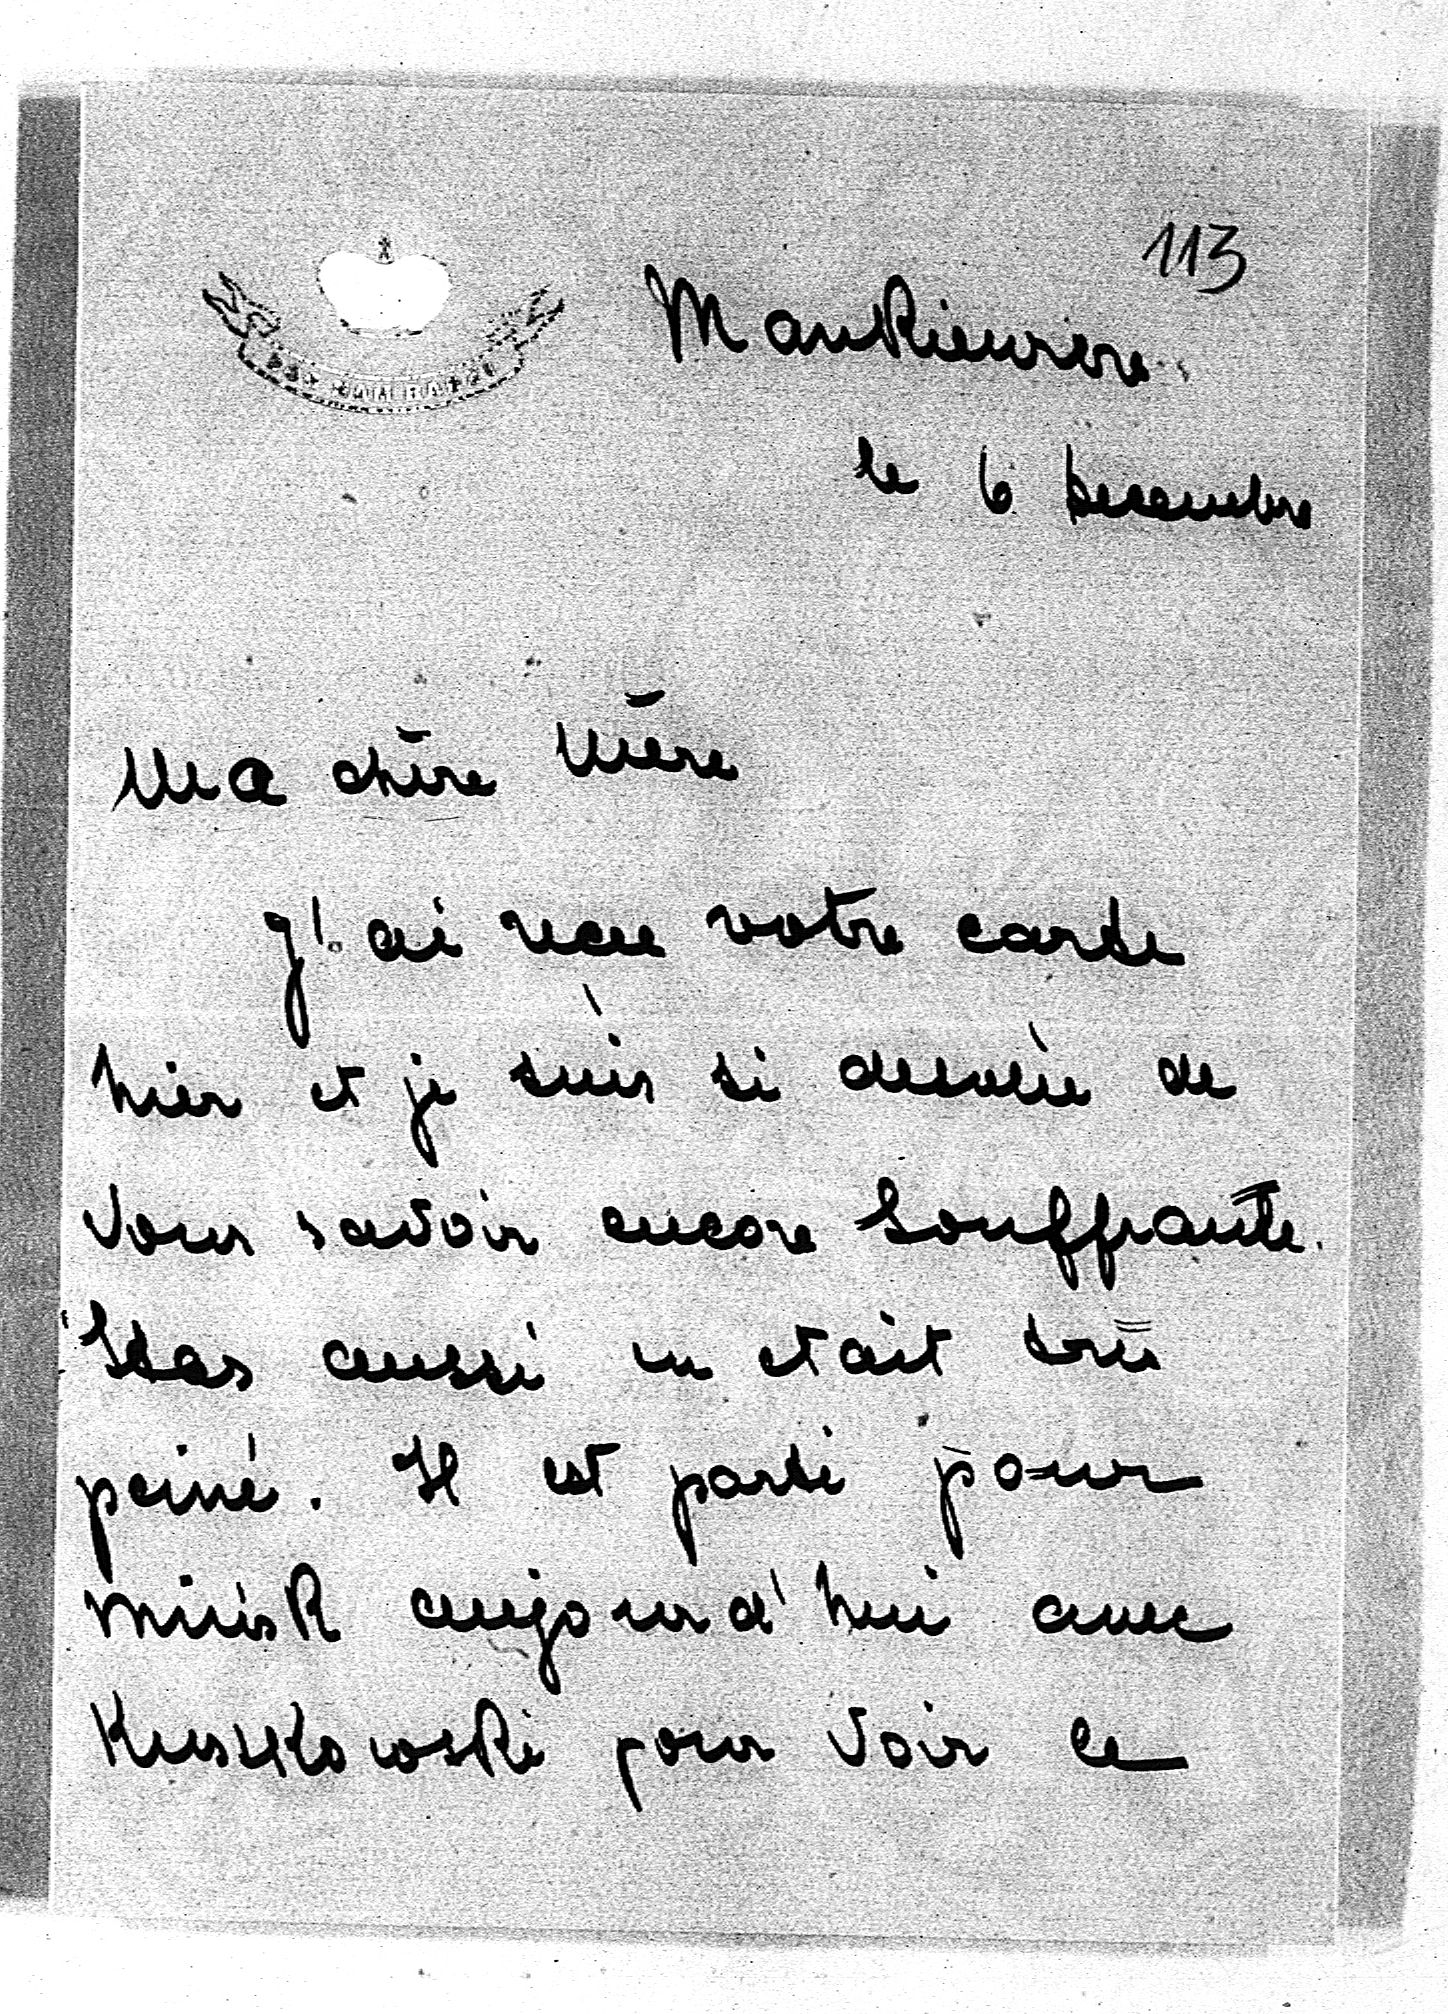 113
Mankiewicze
le 6 Decembre
Ma chère Mère
J'ai recu votre carte
hier et je suis si desolèe de
vous savoir encore Souffrante.
Stas aussi en etait très
peiné. Il est parti pour
Minsk aujourd'hui avec
Kuszkowski pour voir le